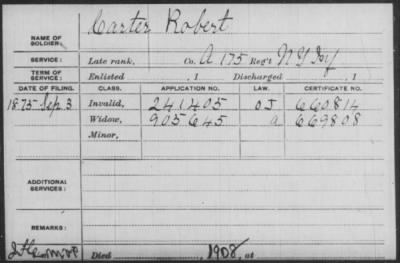 Carter Robert
NAME OF SOLDIER:
SERVICE: Late rank, Co. A 175 Reg't N Y Inf
TERM OF SERVICE: Enlisted , 1 Discharged , 1
DATE OF FILING. CLASS. APPLICATION NO. LAW. CERTIFICATE NO.
1875 Sep 3 Invalid, 241405 O J 660814
Widow, 905645 a 669808
Minor,
ADDITIONAL SERVICES:
REMARKS:
Died , 1908, at